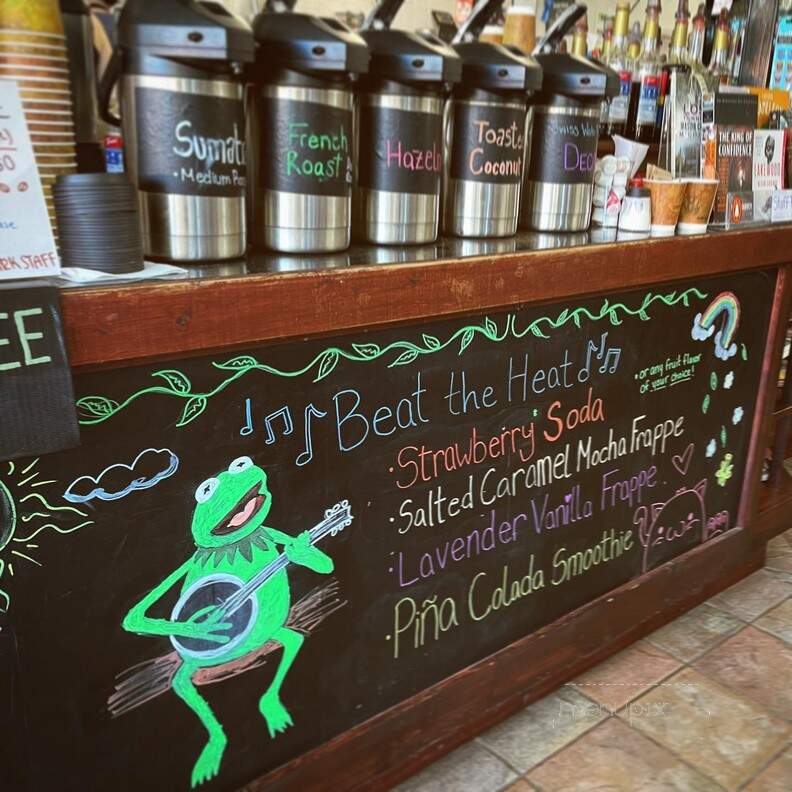 Sumat
• Medium
French
Roast
Hazel
Toaste
Coconut
Swiss
Dec
THE KING OF
CONFIDENCE
Staff
RK STAFF
EE
Beat the Heat
• or any fruit flavor
of your choice!
• Strawberry Soda
• Salted Caramel Mocha Frappe
• Lavender Vanilla Frappe
• Piña Colada Smoothie
menupix